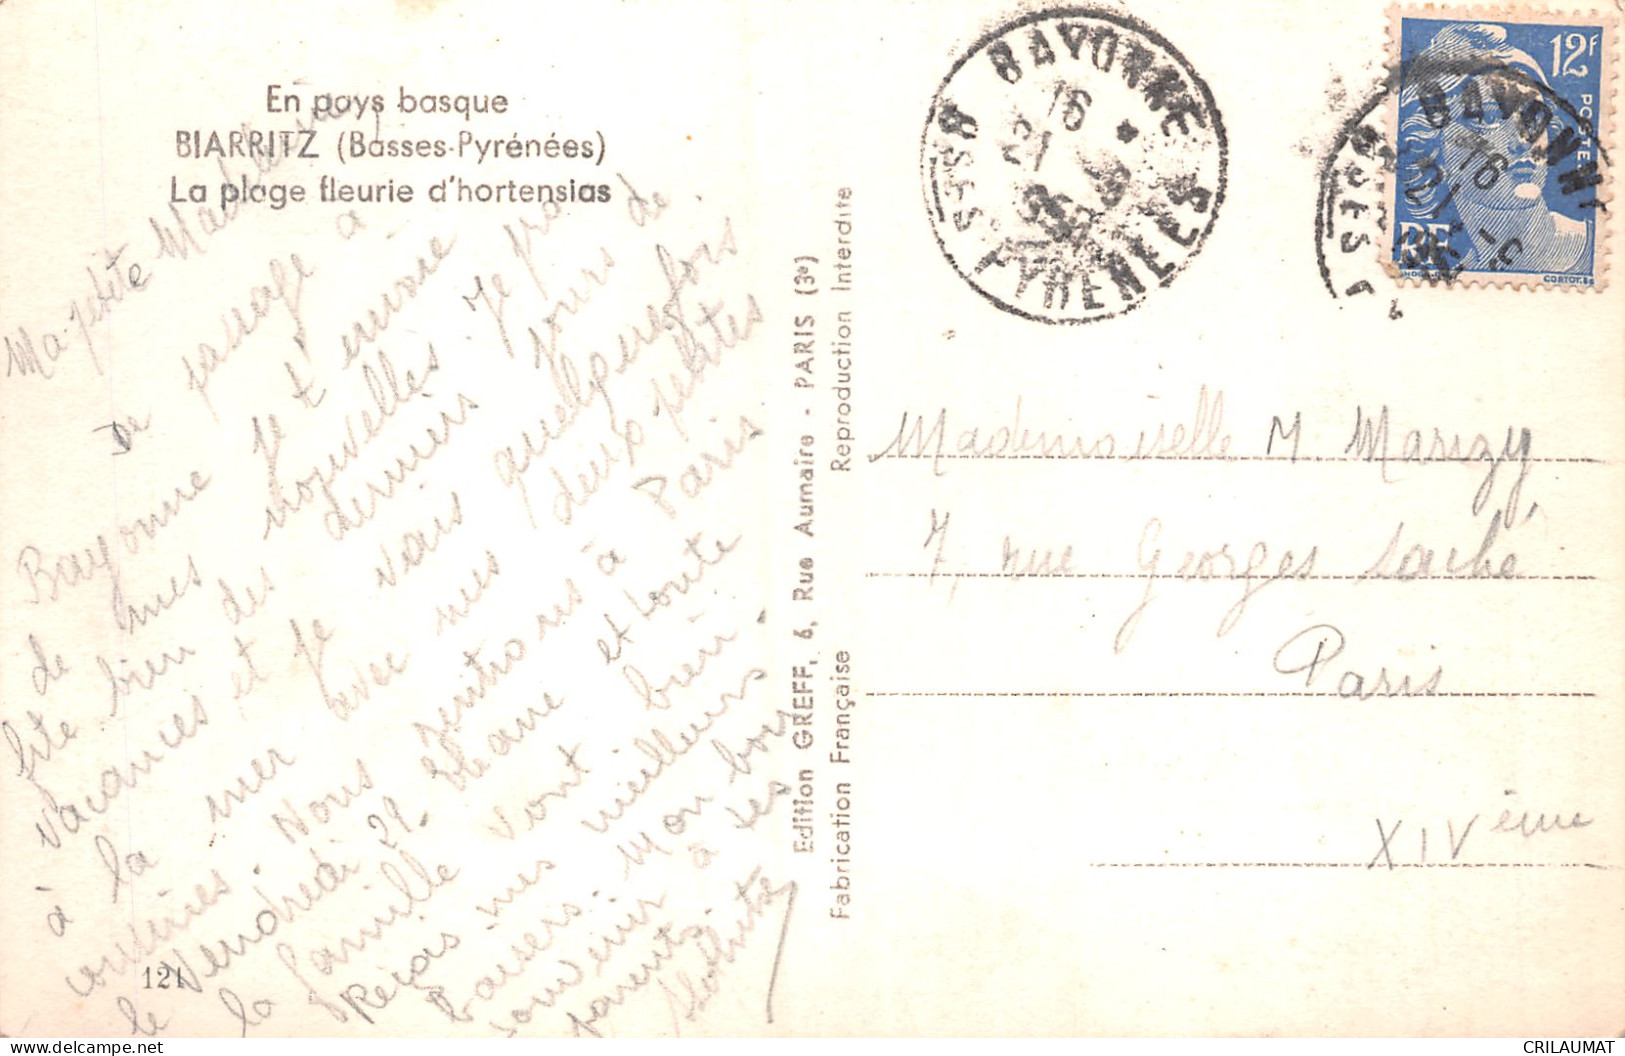 En pays basque
BIARRITZ (Basses-Pyrénées)
La plage fleurie d'hortensias
Ma petite
De passage à
Bayonne je t'envoie
de mes nouvelles. Je pro
fite bien des derniers jours de
vacances et je vais quelquefois
à la mer avec mes deux petites
cousines. Nous rentrons à Paris
le Vendredi 29. et toute
la famille vont bien.
Reçois mes meilleurs
baisers. Mon bon
souvenir à tes
parents
121
Edition GREFF, 6, Rue Aumaire - PARIS (3e)
Fabrication Française Reproduction Interdite
BAYONNE
16
21
BSSES PYRENEES
12F
POSTES
RF
BAYONNE
16
21-9
Mademoiselle M. Marizy
7, rue Georges Saché
Paris
XIVème
CRILAUMAT